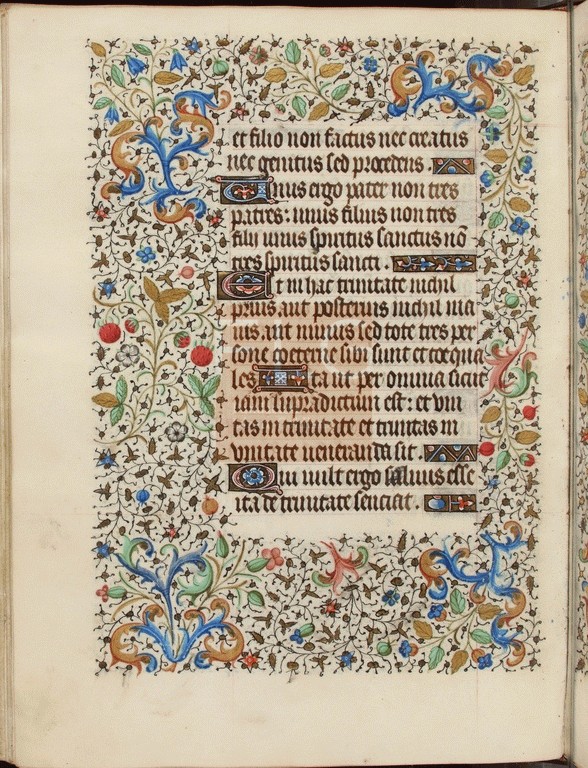 et filio non factus nec creatus
nec genitus sed procedens
Unus ergo pater non tres
patres: unus filius non tres
filij unus spiritus sanctus nō
tres spiritus sancti.
Et in hac trinitate nichil
prius aut posterius nichil ma
ius aut minus sed tote tres per
sone coeterne sibi sunt et coequa
les Ita ut per omnia sicut
iam supradictum est: et uni
tas in trinitate et trinitas in
vnitate veneranda sit.
Qui vult ergo saluus esse
ita de trinitate senciat.